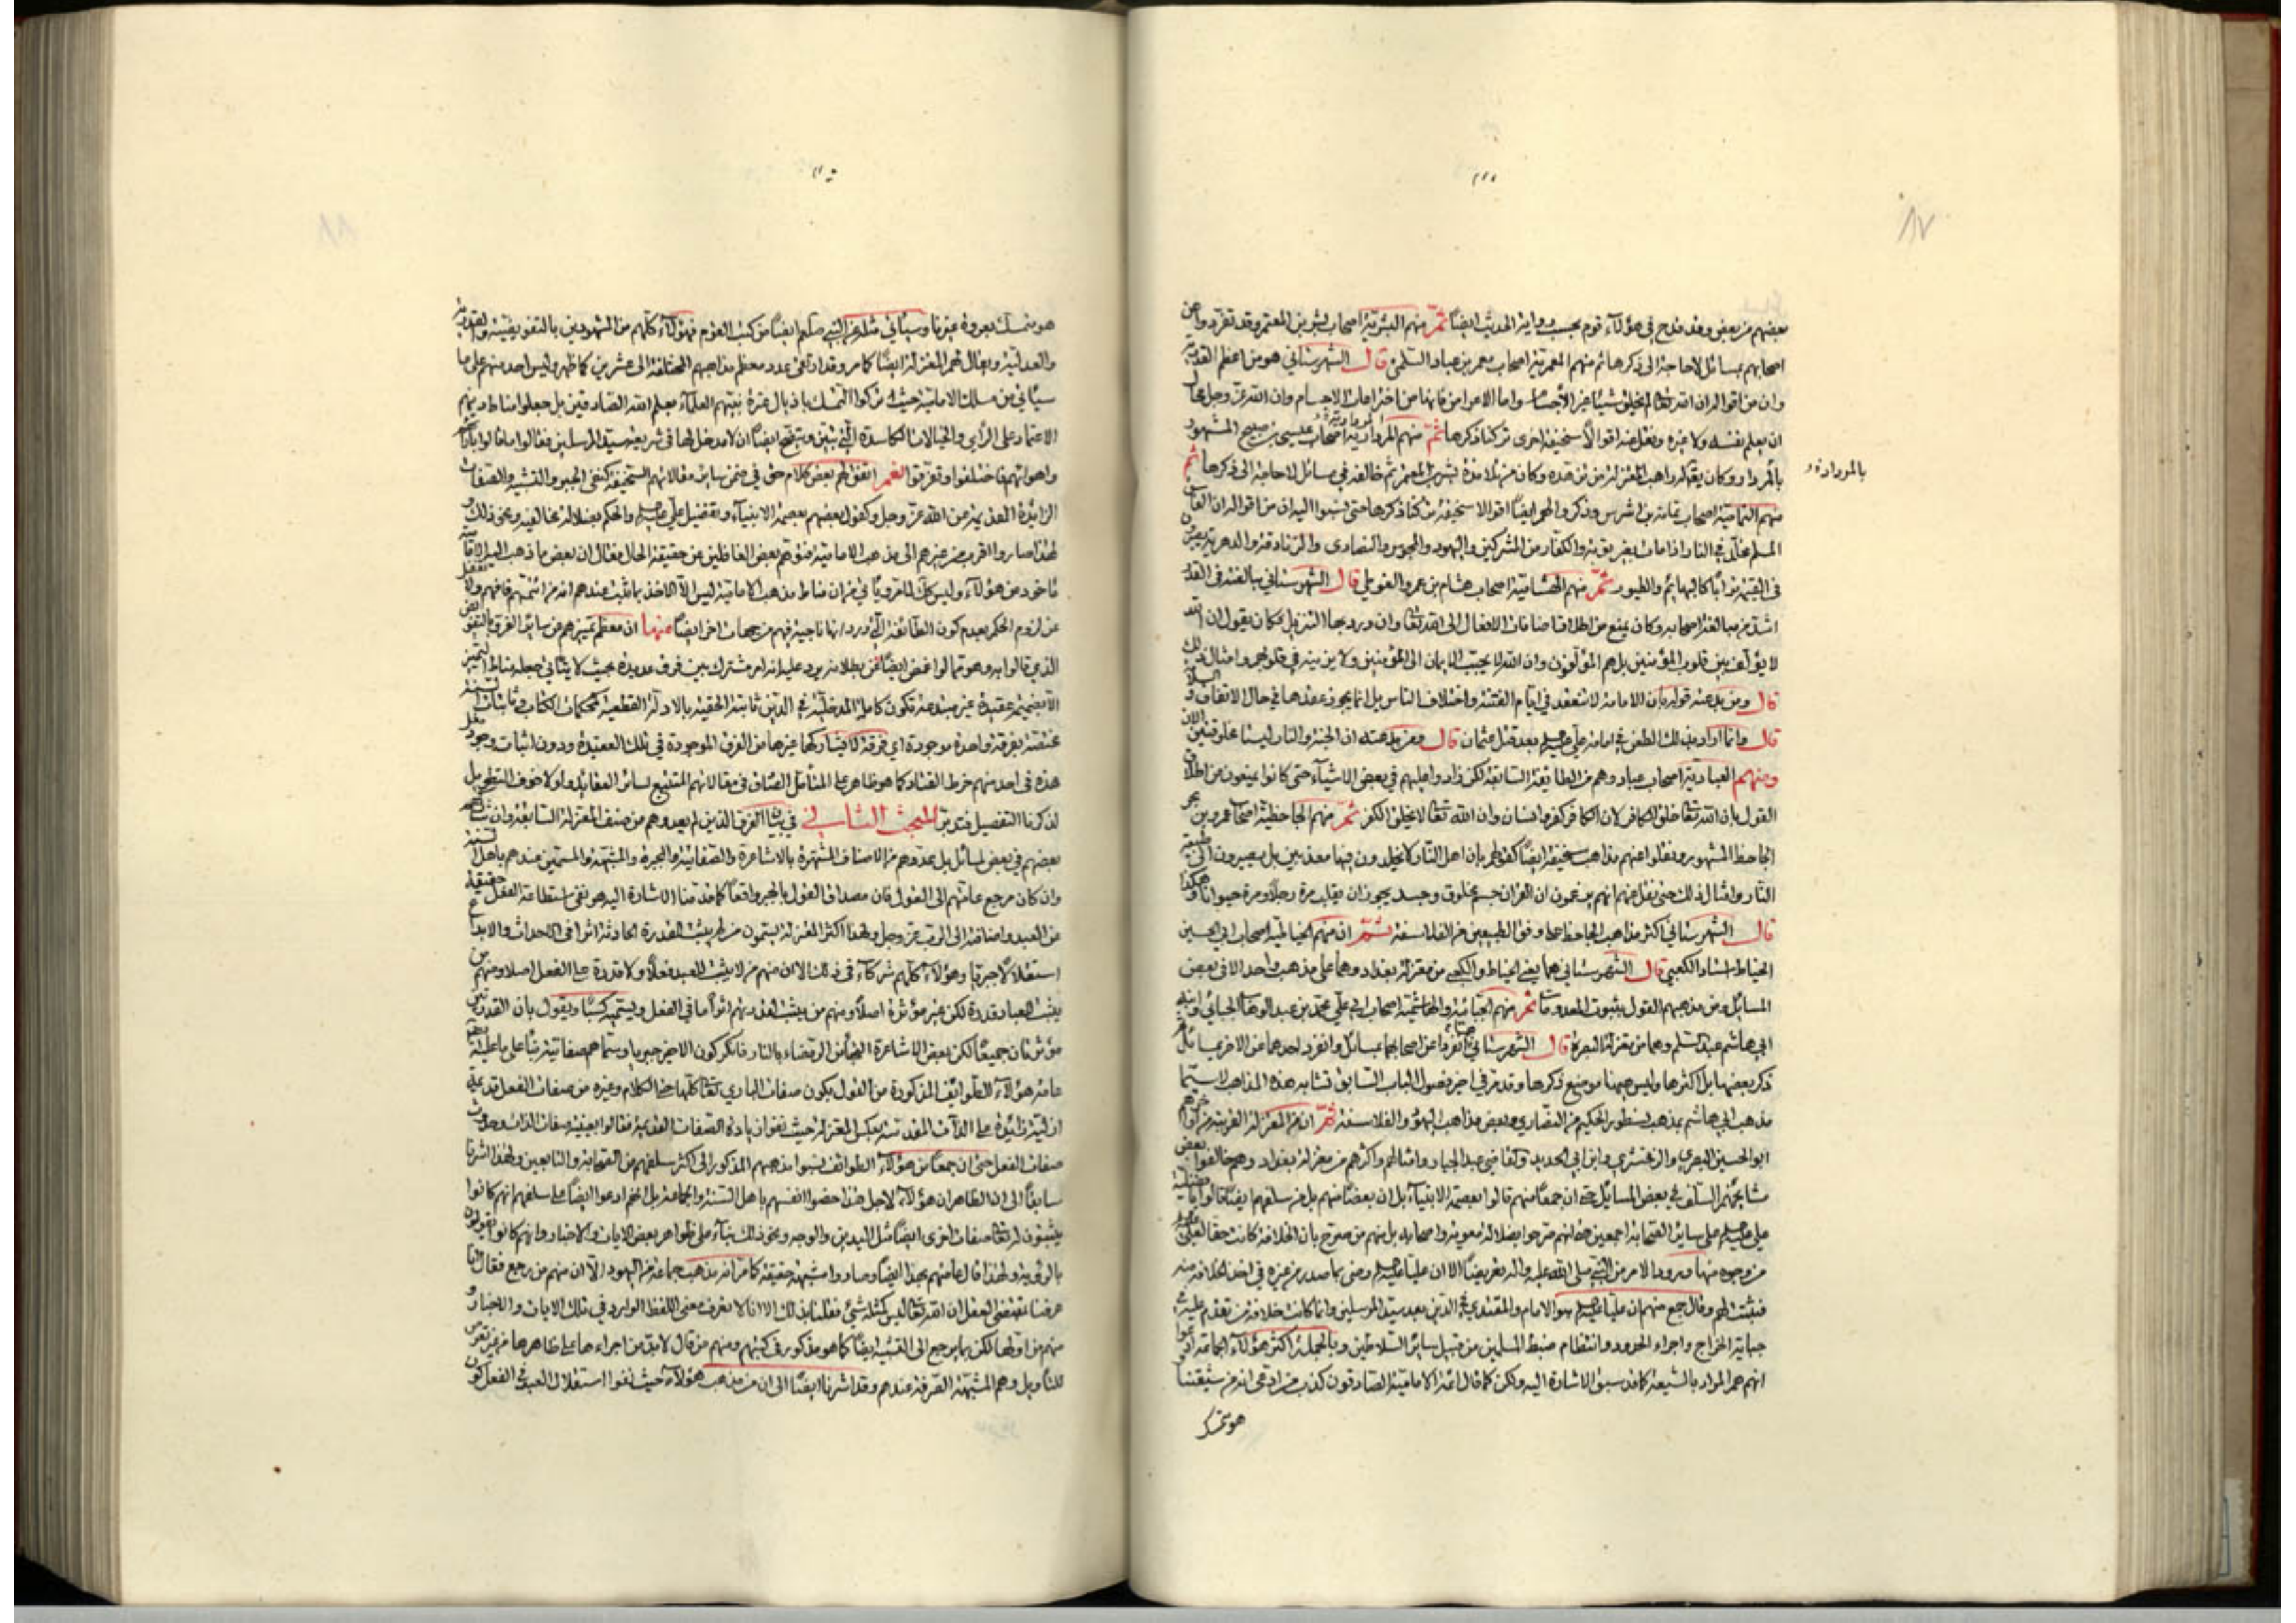 ٨٧
معضهم من بعض وقد قدح في هؤلاء قوم بحسب رواية الحديث ايضاً ثمّ منهم البشرية اصحاب بشر بن المعتمر وقد تفرد وا عن
اصحابهم بمسائل لا حاجة الى ذكرها ثم منهم المعمرية اصحاب معمر بن عباد السلمي قال الشهرستاني هو من اعظم القدرية
وان من اقواله ان الله تعالى لم يخلق شيئا غير الأجسام واما الاعراض فانها من اختراعات الاجسام وان الله عز وجل محال
ان يعلم نفسه ولا غيره ونقل عنه اقوالاً سخيفة اخرى تركنا ذكرها ثمّ منهم المردارية اصحاب عيسى بن صبيح المشهور
بالمردار وكان يقال له راهب المعتزلة من تزهده وكان من تلامذة بشر بن المعتمر ثم خالفه في مسائل لا حاجة الى ذكرها ثم
بالمردارة
منهم الثمامية اصحاب ثمامة بن اشرس وذكروا لهم ايضاً اقوالا سخيفة تركنا ذكرها حتى نسبوا اليه ان من اقواله ان الفاسق
المسلم مخلد في النار اذا مات بغير توبة والكفار من المشركين واليهود والمجوس والنصارى والزنادقة والدهرية يصيرون
في القيمة تراباً كالبهائم والطيور ثمّ منهم الهشامية اصحاب هشام بن عمرو الفوطي قال الشهرستاني مبالغته في القدر
اشد من مبالغة اصحابه وكان يمنع من اطلاق اضافات الافعال الى الله تعالى وان ورد بها التنزيل فكان يقول ان الله
لا يؤلف بين قلوب المؤمنين بل هم المؤلفون وان الله لا يحبب الايمان الى المؤمنين ولا يزينه في قلوبهم وامثال ذلك
قال ومن بدعته قوله بان الامامة لا تنعقد في ايام الفتنة واختلاف الناس بل انما يجوز عقدها في حال الاتفاق و السلامة
قال وانما اراد بذلك الطعن في امامة علي عليه السلم بعد قتل عثمان قال ومن بدعته ان الجنة والنار ليستا مخلوقتين الان
ومنهم العبادية اصحاب عباد وهم من الطايفة السابقة لكن زادوا عليهم في بعض الاشياء حتى كانوا يمنعون من اطلاق
القول بان الله تعالى خلق الكافر لان الكافر كفر وانسان وان الله تعالى لا يخلق الكفر ثمّ منهم الجاحظية اصحاب عمرو بن بحر
الجاحظ المشهور ونقلوا عنهم مذاهب سخيفة ايضاً كقولهم بان اهل النار لا يخلدون فيها معذبين بل يصيرون الى طبيعة
النار وامثال ذلك حتى نقل عنهم انهم يزعمون ان القران جسم مخلوق وجسد يجوز ان يقلب مرة رجلاً ومرة حيوانا وهكذا
قال الشهرستاني اكثر مذاهب الجاحظ على وفق الطبيعيين من الفلاسفة ثمّ ان منهم الخياطية اصحاب ابي الحسين
الخياط استاد الكعبي قال الشهرستاني هما يعني الخياط والكعبي من معتزلة بغداد وهما على مذهب واحد الا في بعض
المسائل ومن مذهبهم القول بثبوت المعدومات ثمّ منهم الجبائية والهاشمية اصحاب ابي علي محمد بن عبد الوهاب الجبائي وابنه
ابي هاشم عبد السلم وهما من معتزلة البصرة قال الشهرستاني انفردا عن اصحابهما بمسائل وانفرد احدهما عن الاخر بمسائل
ذكر بعضها بل اكثرها وليس هيهنا موضع ذكرها وقد مر في اخر فصول الباب السابق تشابه هذه المذاهب لا سيّما
مذهب ابي هاشم بمذهب نسطور الحكيم من النصارى وبعض مذاهب اليهود والفلاسفة ثمّ ان من المعتزلة القريبة من اواخرهم
ابو الحسين البصري والزمخشري وابن ابي الحديد والقاضي عبد الجبار وامثالهم واكثرهم من معتزلة بغداد وهم خالفوا بعض
مشايخهم السلف في بعض المسائل حتى ان جمعاً منهم قالوا بعصمة الانبياء بل ان بعضاً منهم بل من سلفهم ايضاً قالوا بافضلية
علي عليه السلم على سائر الصحابة اجمعين حتى انهم صرحوا بضلالة معوية واصحابه بل منهم من صرح بان الخلافة كانت حقا لعلي عليه السلم
من وجوه منها ورود الامر من النبي صلى الله عليه واله تعريضاً الا ان علياً عليه السلم رضي بما صدر من غيره في اخذ الخلافة منه
فثبتت لهم وقال جمع منهم ان علياً عليه السلم هو الامام والمقتدى في الدين بعد سيّد المرسلين وانما كانت خلافة من تقدم عليه في
جباية الخراج واجراء الحدود وانتظام ضبط المسلمين من قبيل سائر السلاطين وبالجملة اكثر هؤلاء الجماعة ادعوا
انهم هم المراد بالشيعة كما قد سبق الاشارة اليه ولكن كما قال ائمة الامامية الصادقون كذب من ادعى انه من شيعتنا
هو متمسك
هو متمسك بعروة غيرنا وسيأتي مثله عن النبي صلعم ايضاً من كتب القوم فهؤلاء كلهم من المشهورين بالتفويضية والقدرية
والعدلية ويقال لهم المعتزلة ايضاً كما مر وقد ادعي عدد معظم مذاهبهم المختلفة الى عشرين كما ظهر وليس احد منهم على ما
سيأتي من مسلك الامامية حيث تركوا التمسك باذيال عترة نبيهم العلماء بعلم الله الصادقين بل جعلوا مناط دينهم
الاعتماد على الرأي والخيالات الكاسدة الّتي تبين ويتضح ايضاً ان لا مدخل لها في شريعة سيّد المرسلين فقالوا ما قالوا بآرائهم
واهوائهم فاختلفوا وتفرقوا نعم اتفق لهم بعض كلام حق في ضمن سائر مقالاتهم السخيفة كنفي الجبر والتشبيه والصفات
الزائدة القديمة عن الله عزّ وجل وكقول بعضهم بعصمة الانبياء وتفضيل علي عليه السلم والحكم بضلالة مخالفيه ونحو ذلك و
لهذا صاروا اقرب من غيرهم الى مذهب الامامية فتوهم بعض الغافلين عن حقيقة الحال فقال ان بعض ما ذهب اليه الامامية
مأخوذ من هؤلاء وليس كذلك لما مر ويأتي من ان مناط مذهب الامامية ليس الا الاخذ بما ثبت عندهم انه من ائمتهم فافهم ولا تغفل
عن لزوم الحكم بعدم كون الطائفة الّتي ورد انها ناجية فيهم من جهات اخر ايضاً منها ان معظم تميزهم عن سائر الفرق بالتفويض
الذي قالوا به وهو مع بطلانه يرد عليه انه امر مشترك بين فرق عديدة بحيث لا يتأتى جعله مناط التميز
الا بضميمة عقيدة غير مبتدعة تكون كاملة المدخلية في الدين ثابتة الحقية بالادلة القطعية كمحكمات الكتاب وثابتات السنة
مختصة بفرقة واحدة موجودة اي فرقة لا يشاركها غيرها من الفرق الموجودة في تلك العقيدة ودون اثبات وجود مثل
هذه في احد منهم خرط القتاد كما هو ظاهر على المتأمل الصادق في مقالاتهم المتتبع لسائر العقايد ولولا خوف التطويل
لذكرنا التفصيل فتدبر المبحث الثاني في بيان الفرق الذين لم يعدوهم من صنف المعتزلة السابقة وان شاركهم
بعضهم في بعض المسائل بل عدوهم من الاصناف المشتهرة بالاشاعرة والصفاتية والمجبرة والمشبهة والمسمين عندهم باهل السنة
وان كان مرجع عامتهم الى القول فان مصداق القول بالجبر واقعاً كما قدمنا الاشارة اليه هو نفي استطاعة الفعل حقيقة
عن العبد واضافته الى الرب عز وجل ولهذا اكثر المعتزلة يسمون من لم يثبت للقدرة الحادثة اثرا في الاحداث والابداع
استقلالاً جبريا وهؤلاء كلهم شركاء في ذلك الا ان منهم من لا يثبت للعبد فعلاً ولا قدرة على الفعل اصلا ومنهم من
يثبت للعباد قدرة لكن غير مؤثرة اصلاً ومنهم من يثبت لقدرتهم اثراً ما في الفعل ويسميه كسبا ويقول بان القدرتين
مؤثرتان جميعاً لكن بعض الاشاعرة فانكر كون الاخير جبريا وسماهم صفاتية بناء على ما عليه
عامة هؤلاء الطوايف المذكورة من القول بكون صفات الباري تعالى كلها حتى الكلام وغيره من صفات الفعل قديمة
ازلية زائدة على الذات المقدسة بعكس المعتزلة حيث نفوا زيادة الصفات القديمة فقالوا بعينية صفات الذات وحدوث
صفات الفعل حتى ان جمعاً من هؤلاء الطوائف نسبوا مذهبهم المذكور الى اكثر سلفهم من الصحابة والتابعين ولهذا اشرنا
سابقاً الى ان الظاهر ان هؤلاء لاجل هذا خصوا انفسهم باهل السنة والجماعة بل انهم ادعوا ايضاً على سلفهم انهم كانوا
يثبتون له تعالى صفات اخرى ايضاً مثل اليدين والوجه ونحو ذلك بناء على ظواهر بعض الايات والاخبار وانهم كانوا يقولون
بالرؤية ولهذا قال عامتهم بهذا ايضاً وصاروا مشبهة حقيقة كما مر انه مذهب جماعة من اليهود الّا ان منهم من رجع فقال انا
عرفنا بمقتضى العقل ان الله تعالى ليس كمثله شيء فقلنا بذلك الا انا لا نعرف معنى اللفظ الوارد في تلك الايات والاخبار و
منهم من اولها لكن بما يرجع الى التشبيه ايضاً كما هو مذكور في كتبهم ومنهم من قال لا بد من اجراءها على ظاهرها من غير تعرض
للتأويل وهم المشبهة الصرفة عندهم وقد اشرنا ايضاً الى ان من مذهب هؤلاء حيث نفوا استقلال العبد في الفعل كون